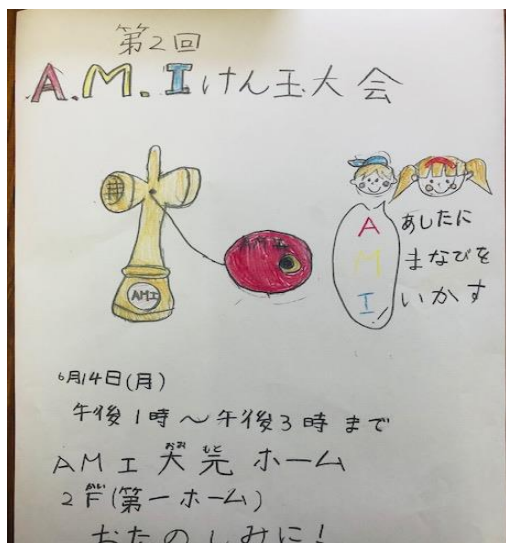 第2回
A.M.Iけん玉大会
AMI
AMI
A あしたに
M まなびを
I いかす
6月14日(月)
午後1時〜午後3時まで
おお もと
AMI 大元 ホーム
かい
2F(第一ホーム)
おたのしみに!